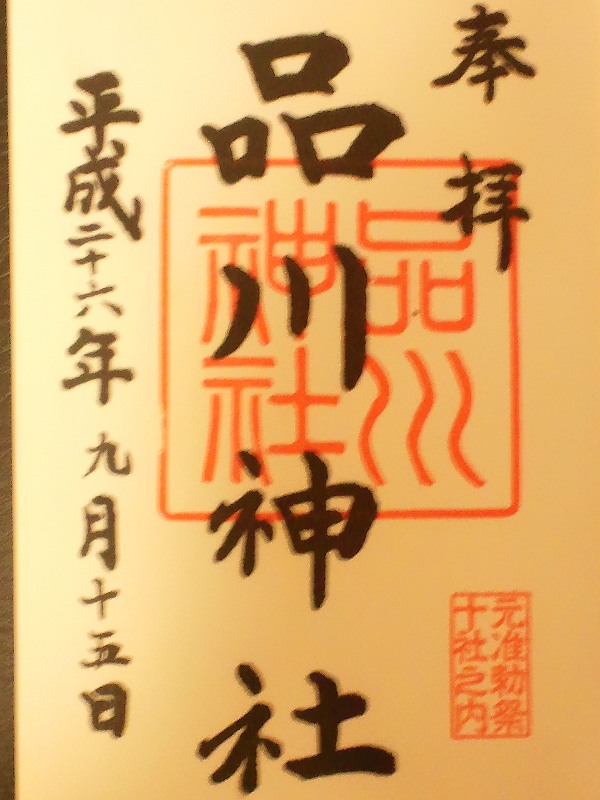 奉拝
品川
神社
品川神社
元准勅祭
十社之内
平成二十六年九月十五日